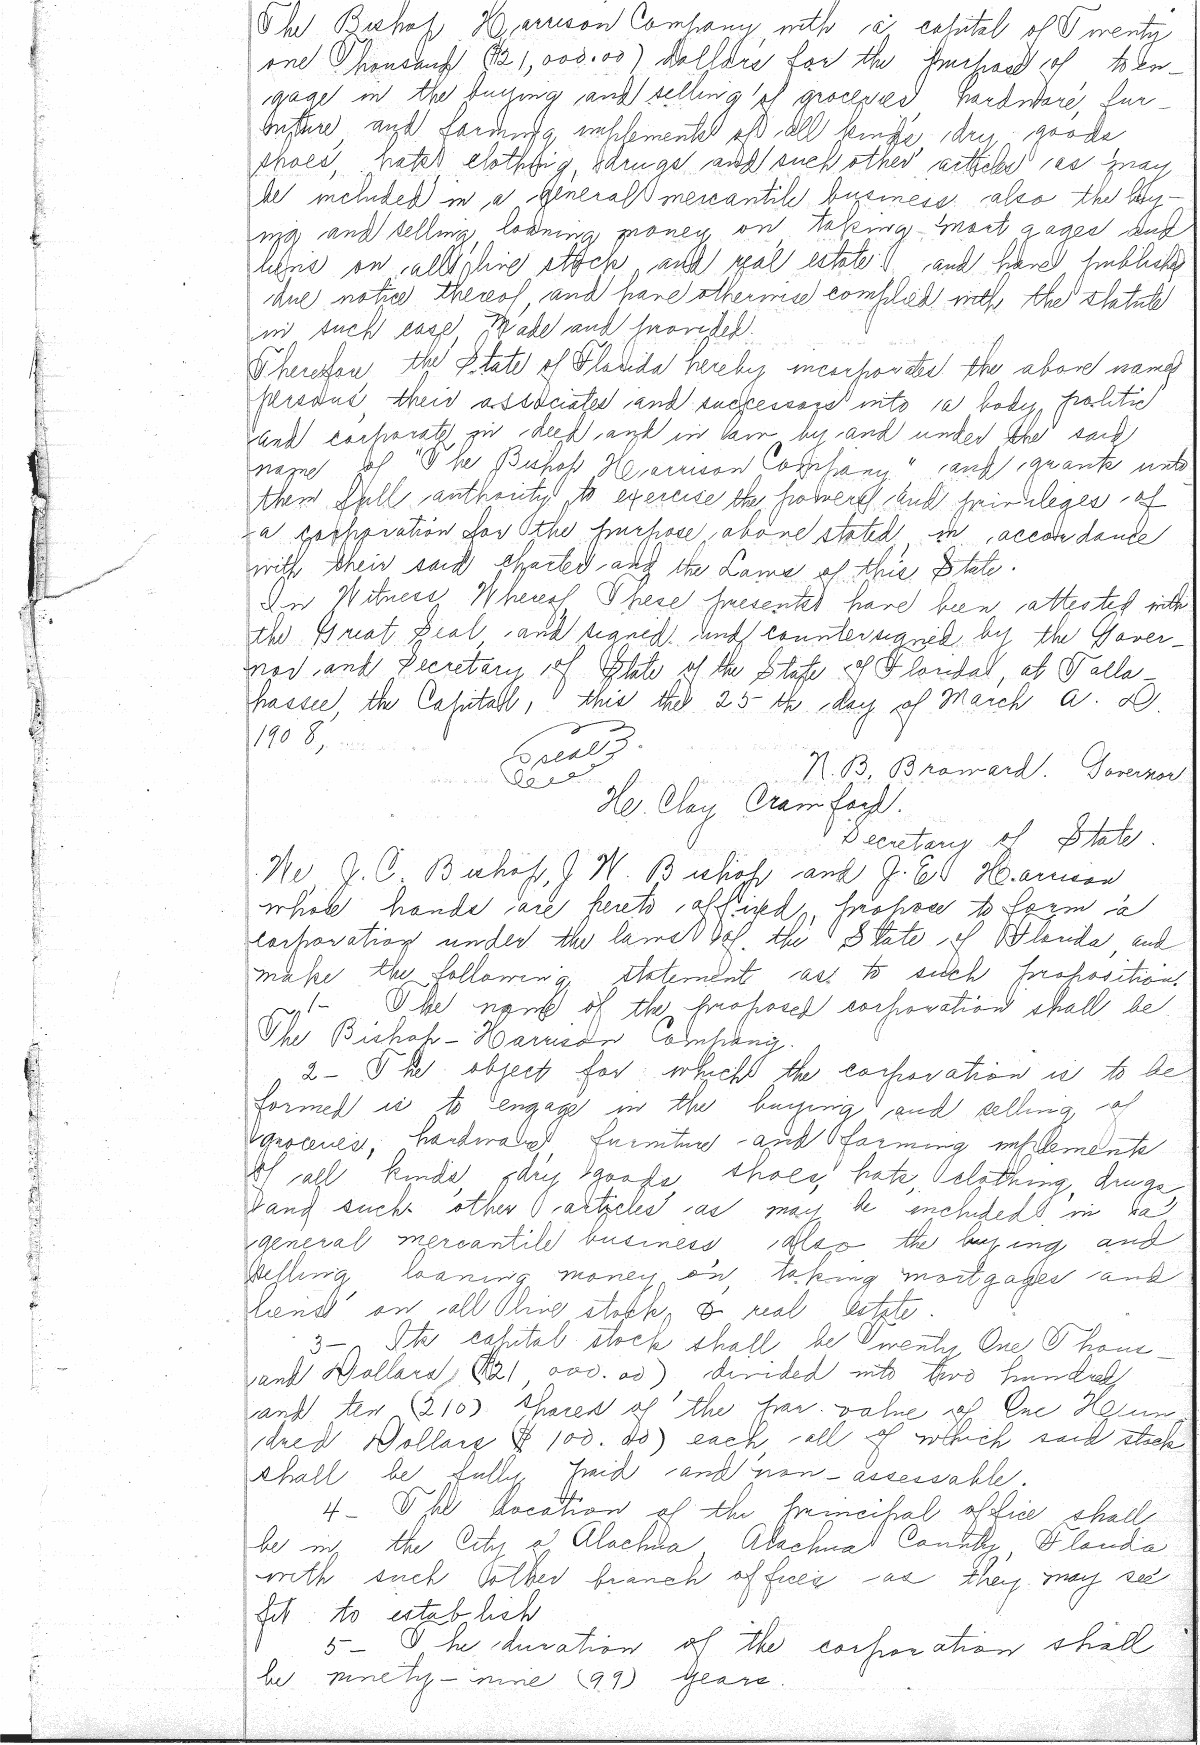 The Bishop Harrison Company, with a capital of Twenty
one Thousand ($21,000.00) dollars for the purpose of to en-
gage in the buying and selling of groceries, hardware, fur-
niture, and farming implements of all kinds, dry goods
shoes, hats, clothing, drugs and such other articles as may
be included in a general mercantile business also the buy-
ing and selling, loaning money on, taking mortgages and
liens on all live stock and real estate. and have published
due notice thereof, and have otherwise complied with the statute
in such case, Made and provided.
Therefore, the State of Florida hereby incorporates the above named
persons, their associates and successors into a body politic
and corporate in deed and in law by and under the said
name of "The Bishop Harrison Company" and grants unto
them full authority to exercise the powers and privileges of
a corporation for the purpose above stated, in accordance
with their said charter and the Laws of this State.
In Witness Whereof, These presents have been attested with
the Great Seal, and signed and countersigned by the Gover-
nor and Secretary of State of the State of Florida, at Talla-
hassee, the Capital, this the 25th day of March A. D.
1908,
Seal
N. B. Broward. Governor
H. Clay Crawford.
Secretary of State.
We, J. C. Bishop, J W. Bishop and J. E. Harrison
whose hands are hereto affixed, propose to form a
corporation under the laws of the State of Florida, and
make the following statement as to such proposition.
1- The name of the proposed corporation shall be
The Bishop-Harrison Company.
2- The object for which the corporation is to be
formed is to engage in the buying and selling of
groceries, hardware, furniture and farming implements
of all kinds, dry goods, shoes, hats, clothing, drugs,
and such other articles as may be included in a
general mercantile business, also the buying and
selling, loaning money on, taking mortgages and
liens on all live stock & real estate.
3- Its capital stock shall be Twenty One Thous-
and Dollars ($21,000.00) divided into two hundred
and ten (210) shares of the par value of One Hun
dred Dollars ($100.00) each, all of which said stock
shall be fully paid and non-assessable.
4- The location of the principal office shall
be in the City of Alachua, Alachua County, Florida
with such other branch offices as they may see
fit to establish
5- The duration of the corporation shall
be ninety-nine (99) years.